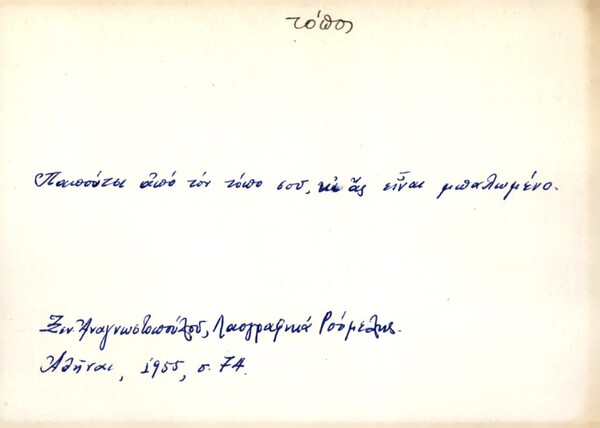 τόπος
Παπούτσι ἀπό τόν τόπο σου, κι ἄς εἶναι μπαλωμένο.
Ξεν. Ἀναγνωστοπούλου, Λαογραφικά Ρούμελης.
Ἀθῆναι, 1955, σ. 74.